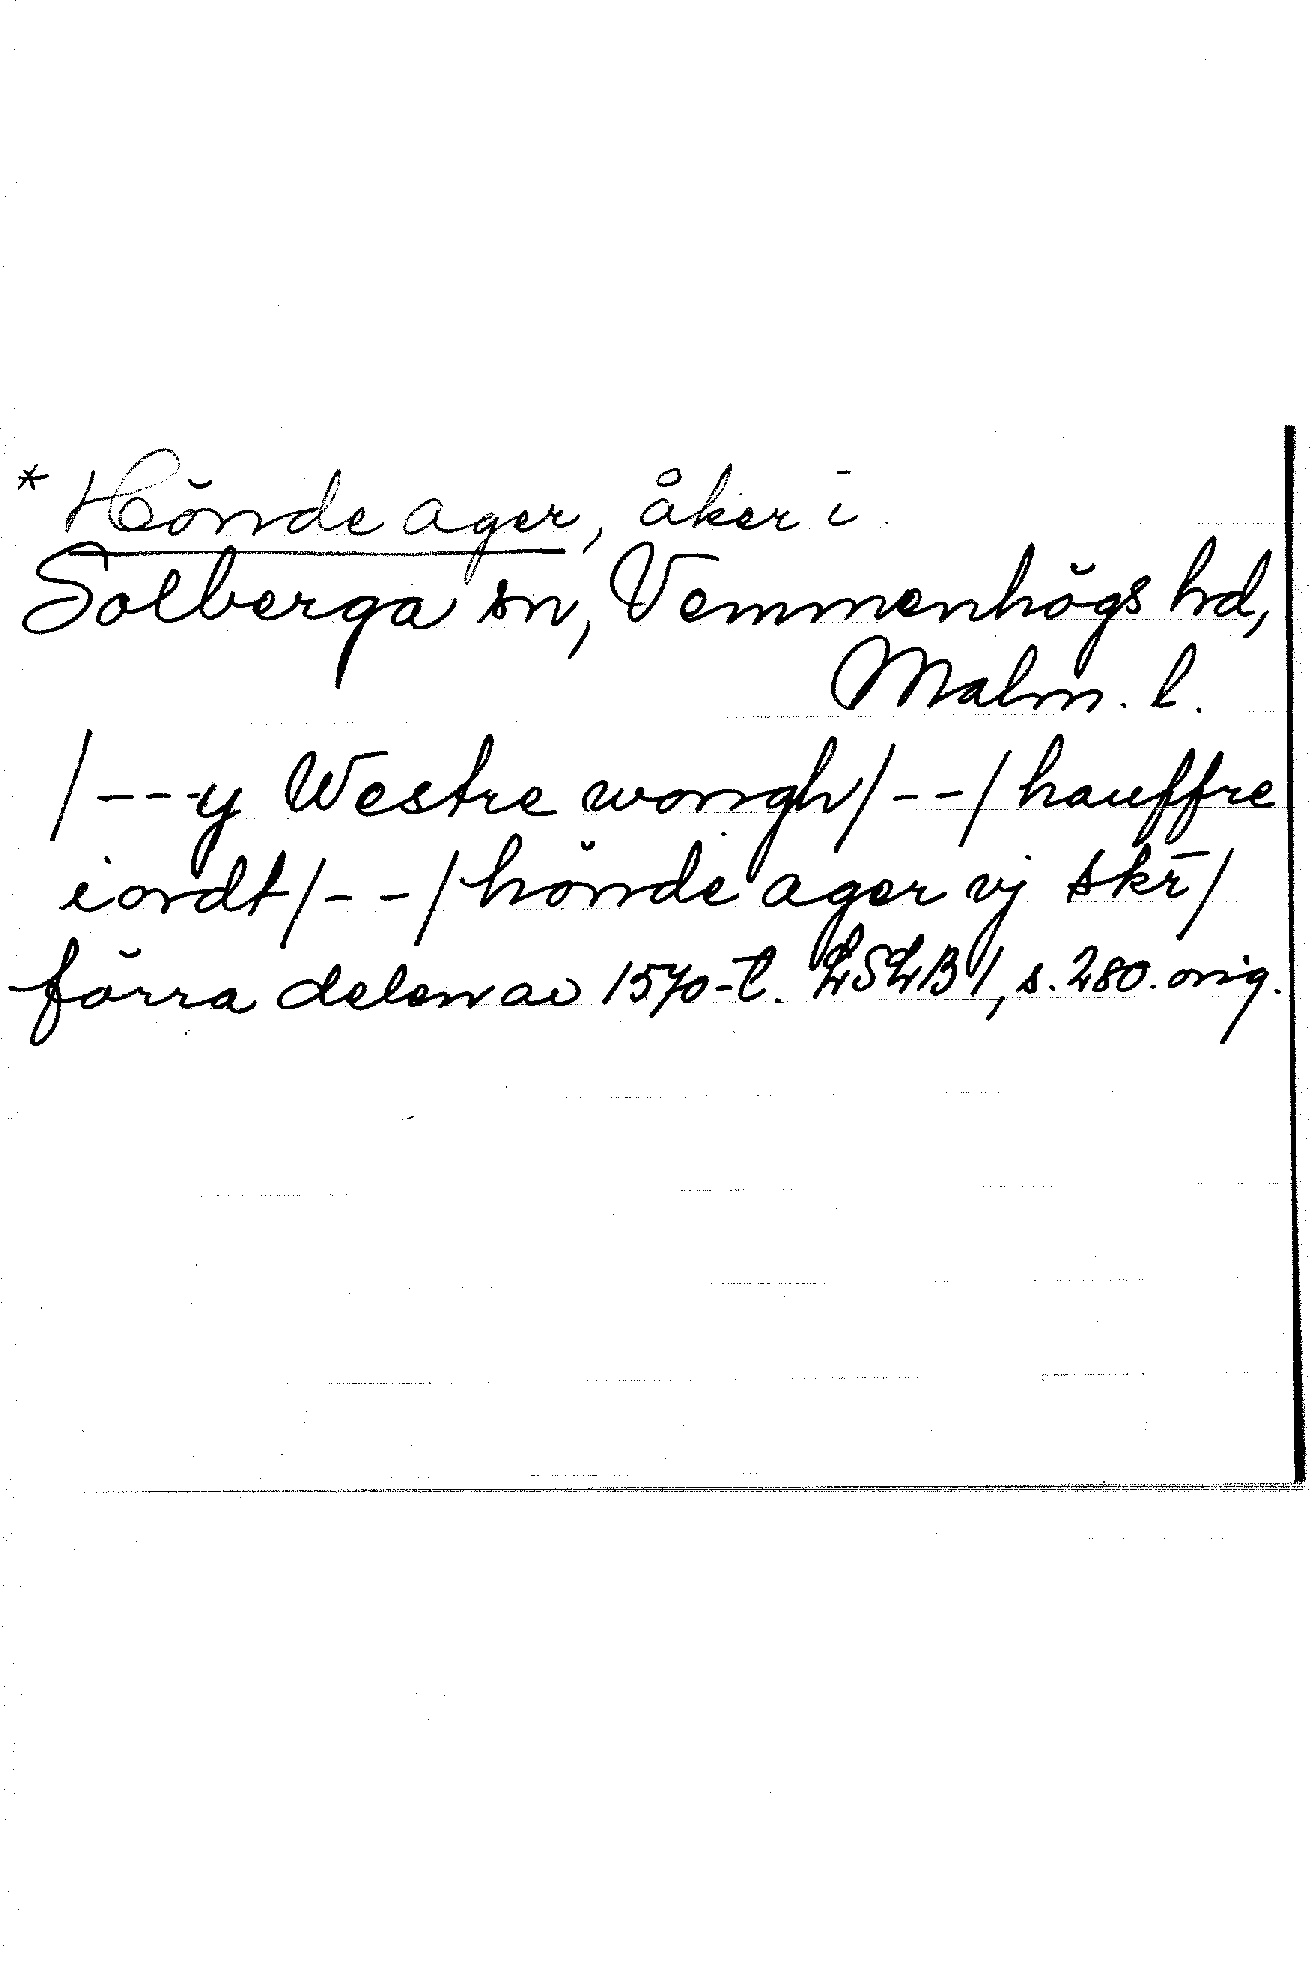 * Hönde ager, åker i
Solberga sn, Vemmenhögs hd,
Malm. l.
/---y Westre wongh/--/hauffre
iordt/--/hönde ager vj skr̄/
förra delen av 1570-t. LSLB 1, s. 280. orig.